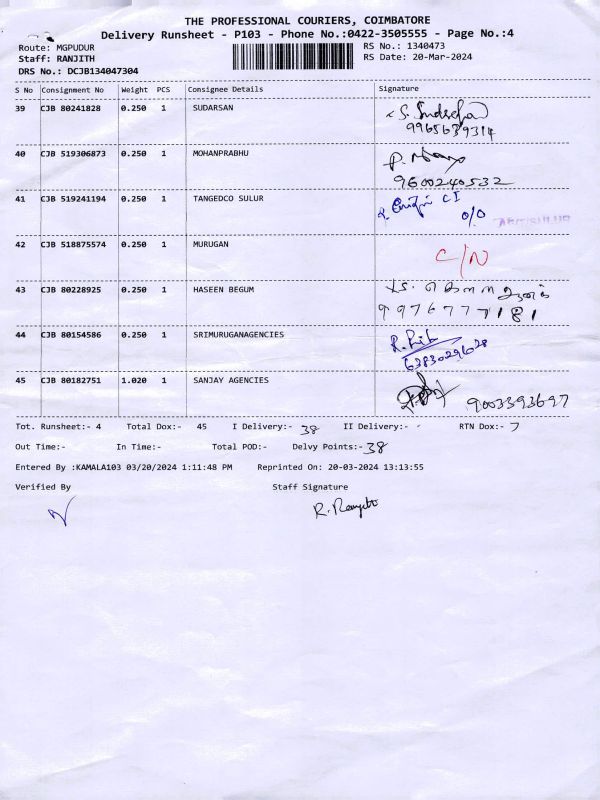 THE PROFESSIONAL COURIERS, COIMBATORE
Delivery Runsheet - P103 - Phone No.:0422-3505555 - Page No.:4
Route: MGPUDUR RS No.: 1340473
Staff: RANJITH RS Date: 20-Mar-2024
DRS No.: DCJB134047304
S No Consignment No Weight PCS Consignee Details Signature
39 CJB 80241828 0.250 1 SUDARSAN
9965639314
40 CJB 519306873 0.250 1 MOHANPRABHU
9600240532
41 CJB 519241194 0.250 1 TANGEDCO SULUR
42 CJB 518875574 0.250 1 MURUGAN C/N
43 CJB 80228925 0.250 1 HASEEN BEGUM
9976777181
44 CJB 80154586 0.250 1 SRIMURUGANAGENCIES
6383029628
45 CJB 80182751 1.020 1 SANJAY AGENCIES 9003393697
Tot. Runsheet:- 4 Total Dox:- 45 I Delivery:- 38 II Delivery:- - RTN Dox:- 7
Out Time:- In Time:- Total POD:- Delvy Points:- 38
Entered By :KAMALA103 03/20/2024 1:11:48 PM Reprinted On: 20-03-2024 13:13:55
Verified By Staff Signature